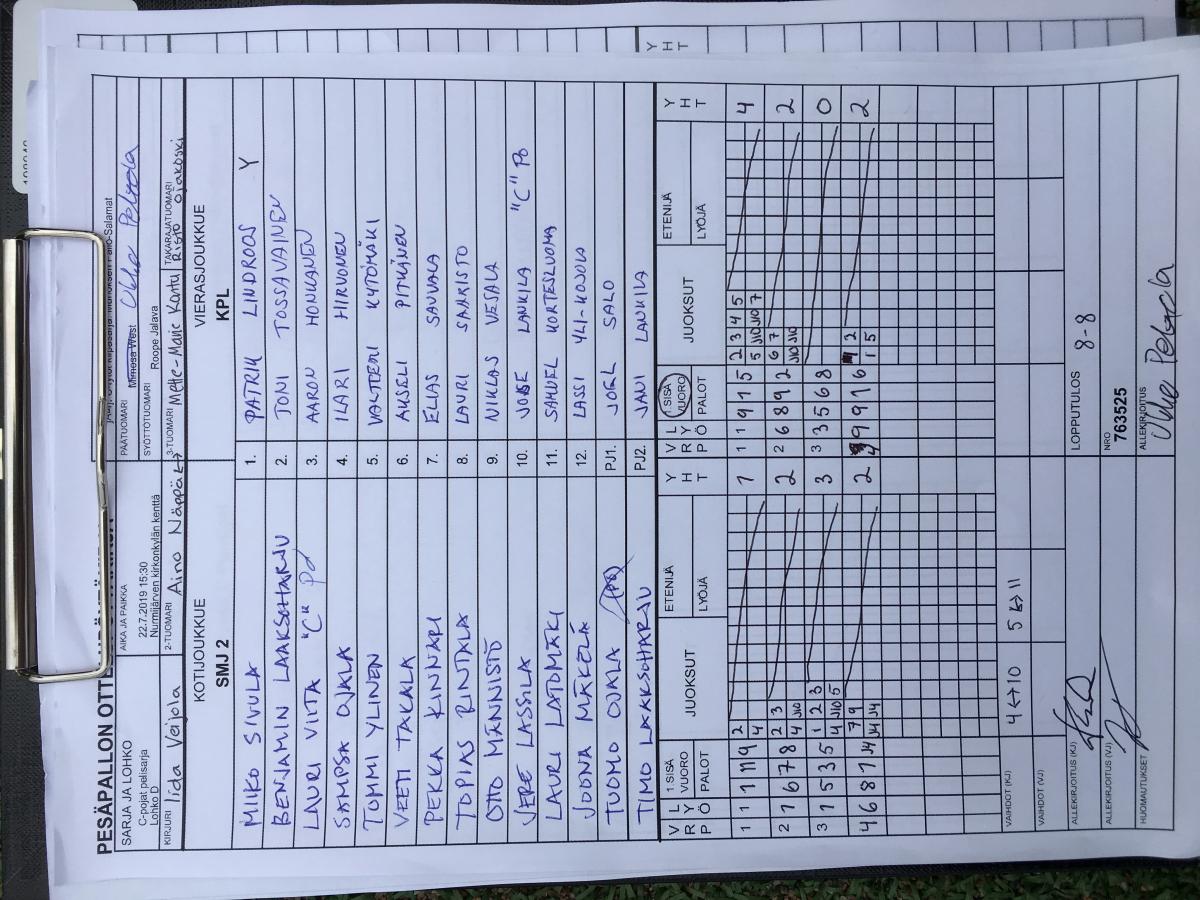 PESÄPALLON
SARJA JA LOHKO
C-pojat pelisarja
Lohko D
AIKA JA PAIKKA
22.7.2019 15:30
Nurmijärven kirkonkylän kenttä
PÄÄTUOMARI
Mimosa West Ukko Peltola
SYÖTTÖTUOMARI
Roope Jalava
KIRJURI Iida Veijola
2-TUOMARI Aino Näppä
3-TUOMARI Mette-Marie Kantu
TAKARAJATUOMARI Risto Ojakoski
KOTIJOUKKUE
SMJ 2
VIERASJOUKKUE
KPL
MIIKO SIVULA 1. PATRIK LINDROOS Y
BENJAMIN LAAKSOHARJU 2. TONI TOSSAVAINEN
LAURI VIITA "C" Pö 3. AARON HONKANEN
SAMPSA OJALA 4. ILARI HIRVONEN
TOMMI YLINEN 5. VALTTERI KYTÖMÄKI
VEETI TAKALA 6. AKSELI PITKÄNEN
PEKKA KINNARI 7. ELIAS SAUVALA
TOPIAS RINTALA 8. LAURI SAARISTO
OTTO MÄNNISTÖ 9. NIKLAS VESALA
JERE LASSILA 10. LAUKILA "C" Pö
LAURI LATOMÄKI 11. SAMUEL KORTESLUOMA
JOONA MÄKELÄ 12. LASSI YLI-KOJOLA
TUOMO OJALA PJ1. JOEL SALO
TIMO LAAKSOHARJU PJ2. JANI LAUKILA
VRP LYÖ 1.SISÄ VUORO PALOT JUOKSUT ETENIJÄ LYÖJÄ YHT
VRP LYÖ 1.SISÄ VUORO PALOT JUOKSUT ETENIJÄ LYÖJÄ YHT
1 1 1 11 9 2 4 1
1 1 9 1 5 2 3 4 5 5 J10 J10 7 4
2 1 6 7 8 2 3 4 J10 2
2 6 8 9 2 6 7 J10 J10 2
3 1 5 3 5 1 2 3 4 J10 5 3
3 3 5 6 8 0
4 6 8 7 J4 7 9 J4 J4 2
9 9 1 6 2 1 5 2
VAIHDOT (KJ) 4↔10 5↔11
VAIHDOT (VJ)
ALLEKIRJOITUS (KJ)
LOPPUTULOS 8-8
ALLEKIRJOITUS (VJ)
NRO
763525
HUOMAUTUKSET
ALLEKIRJOITUS
Ukko Peltola
YHT